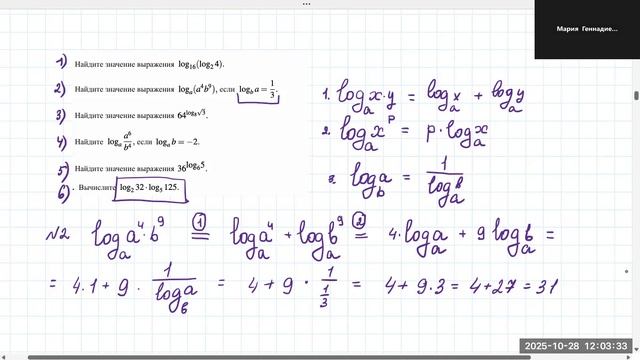 Мария Геннадие...
1) Найдите значение выражения log₁₆(log₂ 4).
2) Найдите значение выражения logₐ(a⁴b⁹), если log_b a = 1/3.
3) Найдите значение выражения 64^(log₈ √3).
4) Найдите logₐ a⁶/b⁴, если logₐ b = −2.
5) Найдите значение выражения 36^(log₆ 5).
6) Вычислите log₂ 32 · log₅ 125.
1. logₐ x·y = logₐ x + logₐ y
2. logₐ x^p = p·logₐ x
3. log_b a = 1/logₐ b
№2 logₐ a⁴·b⁹ =(1) logₐ a⁴ + logₐ b⁹ =(2) 4·logₐ a + 9 logₐ b =
= 4·1 + 9 · 1/log_b a = 4 + 9 · 1/(1/3) = 4 + 9·3 = 4 + 27 = 31
2025-10-28 12:03:33